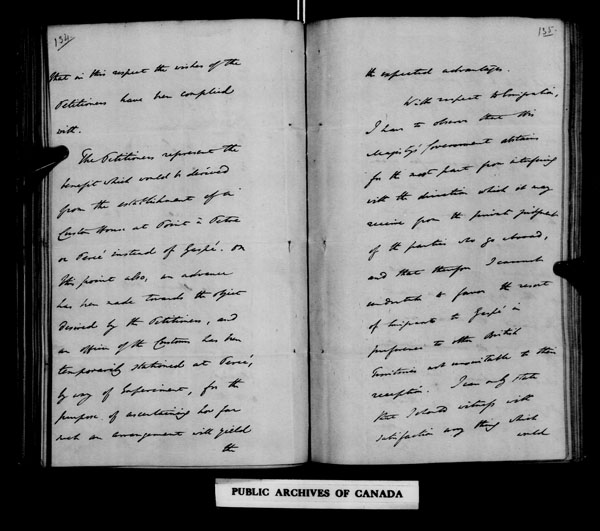 134
that in this respect the wishes of the
Petitioners have been complied
with.
The Petitioners represent the
benefit which would be derived
from the establishment of a
Custom House at Point à Petre
or Percé instead of Gaspé. On
this point also, an advance
has been made towards the object
desired by the Petitioners, and
an officer of the Customs has been
temporarily stationed at Percé,
by way of Experiment, for the
purpose of ascertaining how far
such an arrangement will yield
the
135
the expected advantages.
With respect to Emigration,
I have to observe that His
Majesty's Government abstains
for the most part from interfering
with the direction which it may
receive from the private
of the parties who go abroad,
and that therefore I cannot
undertake to favor the resort
of Emigrants to Gaspé in
preference to other British
Territories not unsuitable to their
reception. I can only state
that I should witness with
satisfaction any thing which
could
PUBLIC ARCHIVES OF CANADA